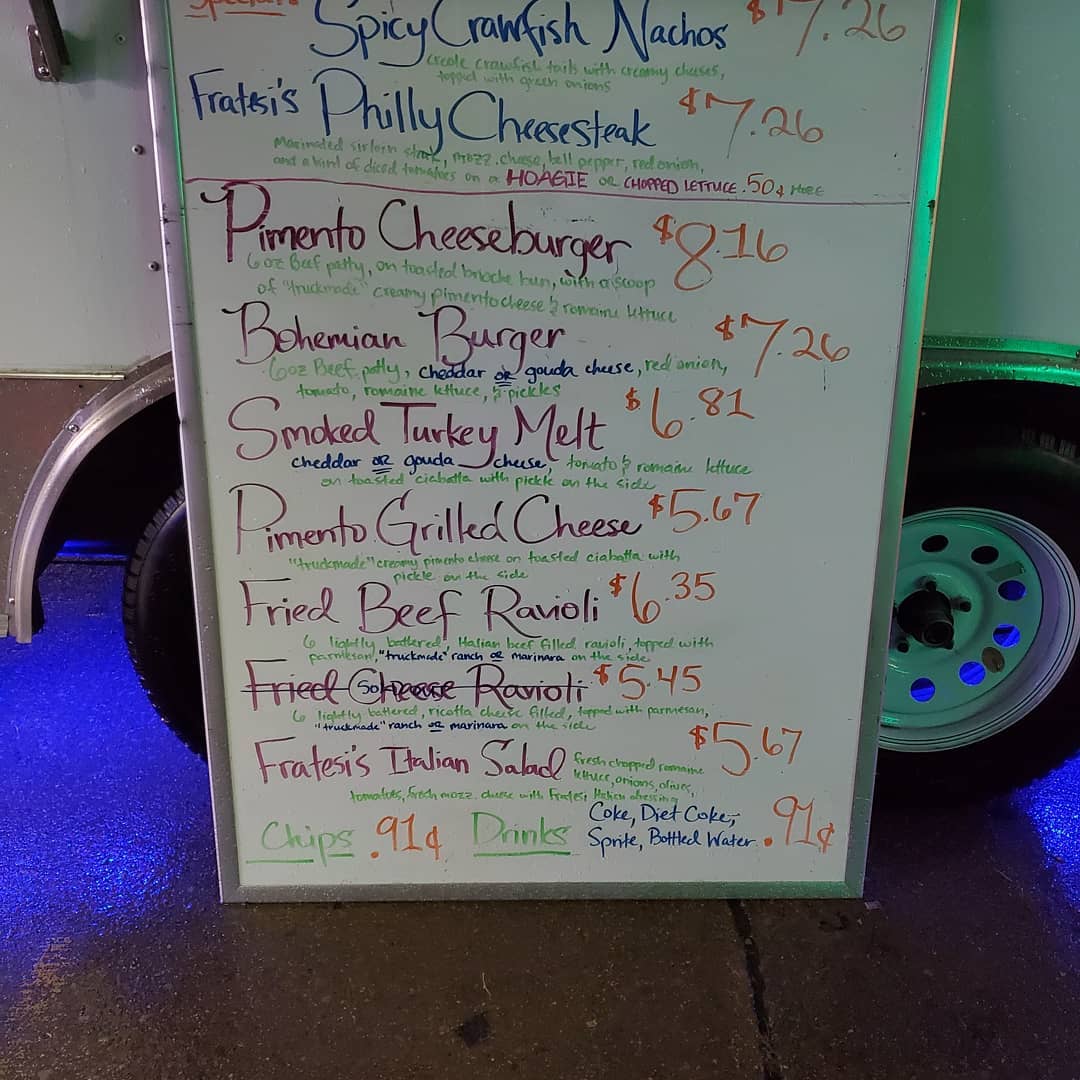 Specials
Spicy Crawfish Nachos $7.26
creole crawfish tails with creamy cheeses,
topped with green onions
Fratesi's Philly Cheesesteak $7.26
Marinated sirloin steak, mozz. cheese, bell pepper, red onion,
and a hint of diced tomatoes on a HOAGIE OR CHOPPED LETTUCE .50¢ MORE
Pimento Cheeseburger $8.16
6oz Beef patty, on toasted brioche bun, with a scoop
of "truckmade" creamy pimento cheese & romaine lettuce
Bohemian Burger $7.26
6oz Beef patty, cheddar OR gouda cheese, red onion,
tomato, romaine lettuce, & pickles
Smoked Turkey Melt $6.81
cheddar OR gouda cheese, tomato & romaine lettuce
on toasted ciabatta with pickle on the side
Pimento Grilled Cheese $5.67
"truckmade" creamy pimento cheese on toasted ciabatta with
pickle on the side
Fried Beef Ravioli $6.35
6 lightly battered, Italian beef filled ravioli, topped with
parmesan, "truckmade" ranch OR marinara on the side
Fried Cheese Ravioli $5.45
6 lightly battered, ricotta cheese filled, topped with parmesan,
"truckmade" ranch OR marinara on the side
Fratesi's Italian Salad $5.67
fresh chopped romaine
lettuce, onions, olives,
tomatoes, fresh mozz. cheese with Fratesi Italian dressing
Chips .91¢ Drinks Coke, Diet Coke, .91¢
Sprite, Bottled Water